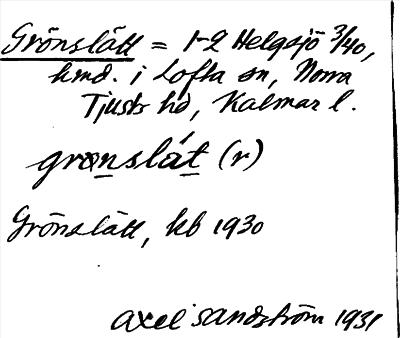 Grönslätt = 1-2 Helgsjö 3/40,
hmd. i Lofta sn, Norra
Tjusts hd, Kalmar l.
gronslát (r)
Grönslätt, kb 1930
Axel Sandström 1931